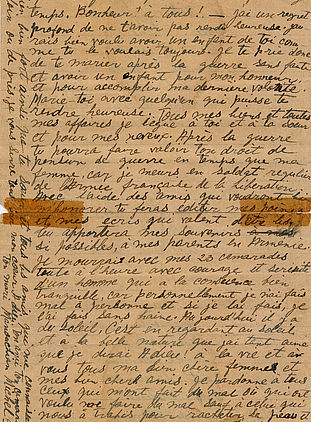 temps. Bonheur ! à tous ! — j'ai un regret
profond de ne t'avoir pas rendu heureuse. j'au
rais bien voulu avoir un enfant de toi com
me tu le voulais toujours. Je te prie donc
de te marier après la guerre sans faute
et avoir un enfant pour mon honneur
et pour accomplir ma dernière volonté.
Marie-toi avec quelqu'un qui puisse te
rendre heureuse. Tous mes biens et toutes
mes affaires je lègue à toi et à ta sœur
et pour mes neveux. Après la guerre
tu pourra faire valoir ton droit de
pension de guerre en temps que ma
femme, car je meurs en soldat regulier
de l'armée française de la Libération.
Avec l'aide des amis qui voudront bien
m'honorer tu feras éditer mes poèmes
et mes écrits qui valent d'être lus
tu apportera mes souvenirs
si possibles, à mes parents en Arménie.
Je mourrais avec mes 23 camarades
toute à l'heure avec courage et serenité
d'un homme qui a la conscience bien
tranquille, car personnellement, je n'ai fais
mal à personne et si je l'ai fais, je
l'ai fais sans haine. Aujourd'hui il y a
du soleil. C'est en regardant au soleil
et à la belle nature que j'ai tant aimé
que je dirai Adieu ! à la vie et à
vous tous ma bien chère femme et
mes bien chers amis. Je pardonne à tous
ceux qui m'ont fait du mal où qui ont
voulu me faire du mal sauf à celui qui
nous à trahis pour racheter sa peau et
bien fort ainsi que ta sœur et tous les amis qui me connaisse
loin ou de près, je vous serre tous
Ton mari Manouchian Michel